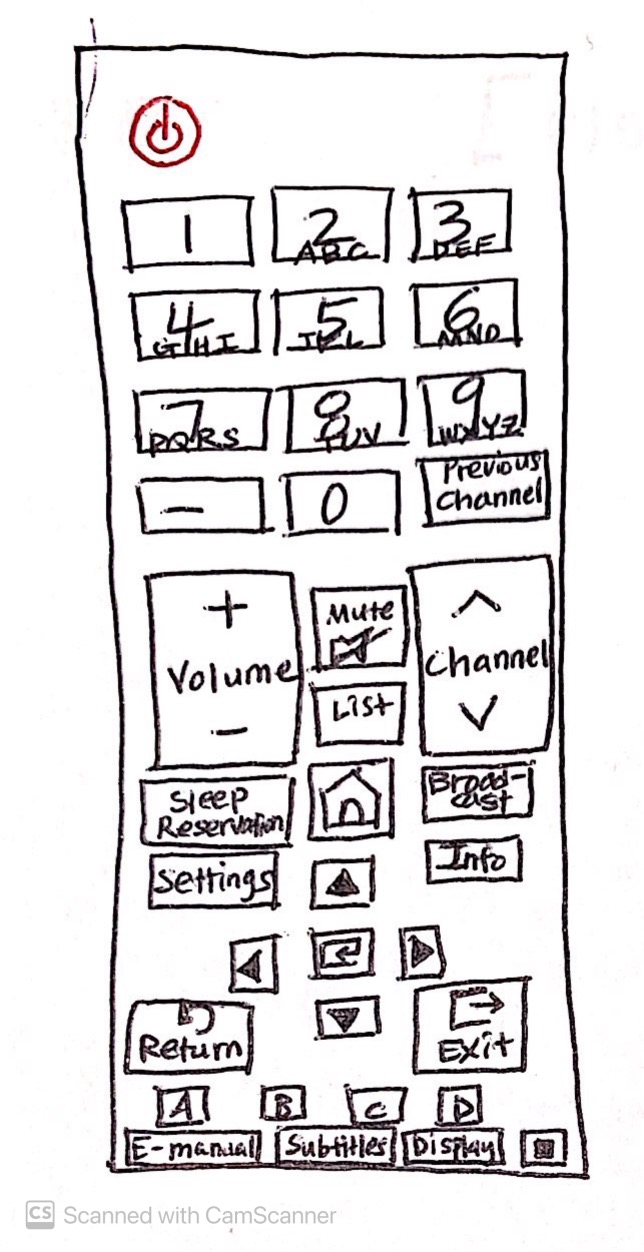 1
2
ABC
3
DEF
4
GHI
5
JKL
6
MNO
7
PQRS
8
TUV
9
WXYZ
-
0
Previous
Channel
+
Volume
-
Mute
List
Channel
Sleep
Reservation
Broad-
cast
Settings
Info
Return
Exit
A
B
C
D
E-manual
Subtitles
Display
CS Scanned with CamScanner